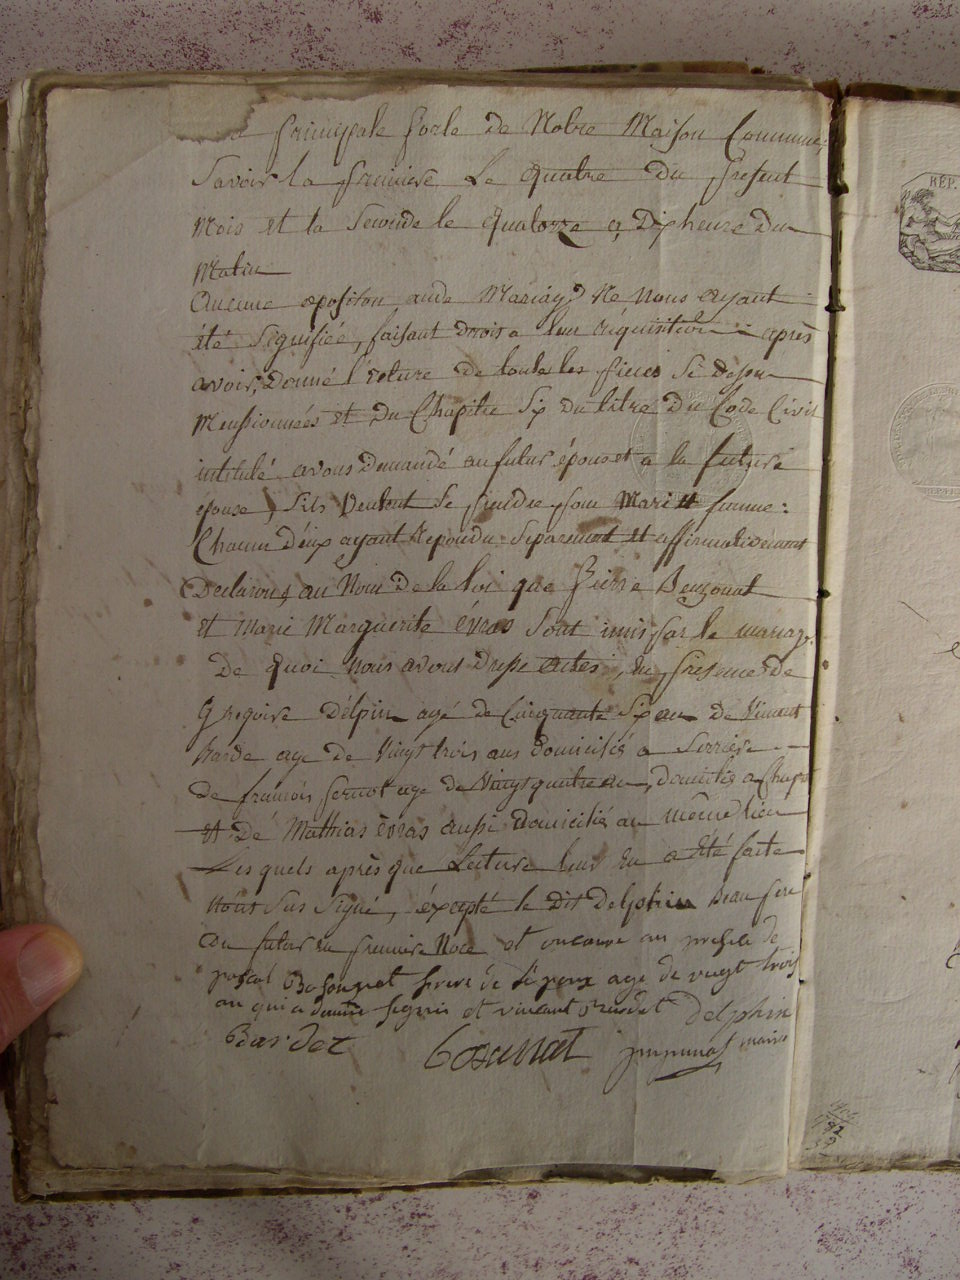 principale porte de Notre Maison Commune,
Savoir la premiere Le quatre du present
Mois et la Seconde le quatorze a Dix heure du
Matin
Aucune oposition audt Mariage Ne Nous ayant
été Signifiée, faisant Droit a leur réquisition après
avoir, Donné l'ecture de toutes les pieces Si desu
Menssionnées et du Chapitre Six du titre du Code Civil
intitulé avons Demandé au futur époux et a la future
épouse, Sils Veulent Se prendre pour Mari et femme:
Chacun d'eux ayant Repondu Séparement et affirmativement
Declarons au Nom De la loi que Pierre Bouzonat
et Marie Marguerite évras Sont unis par le mariage.
De quoi Nous avons Dressé actes, en presence de
Gregoire Délpin agé de Cinquante Six an De Vincent
Barde age de Vingt trois ans domiciliés a Serriere
de francois age de Vingt quatre an, domicilié a
et Dé Mathias évras aussi Domicilié au même lieu
Lesquels après que Lecture leur en a été faite
Nous Sus Signé, éxcepté le Dit Delphin Beau pere
du futur en premiere Noce et encore en presence de
pascal frere de l'epoux age de vingt trois
an qui a signer et vincent Delphin
Bardet Bosunat maire
RÉP.